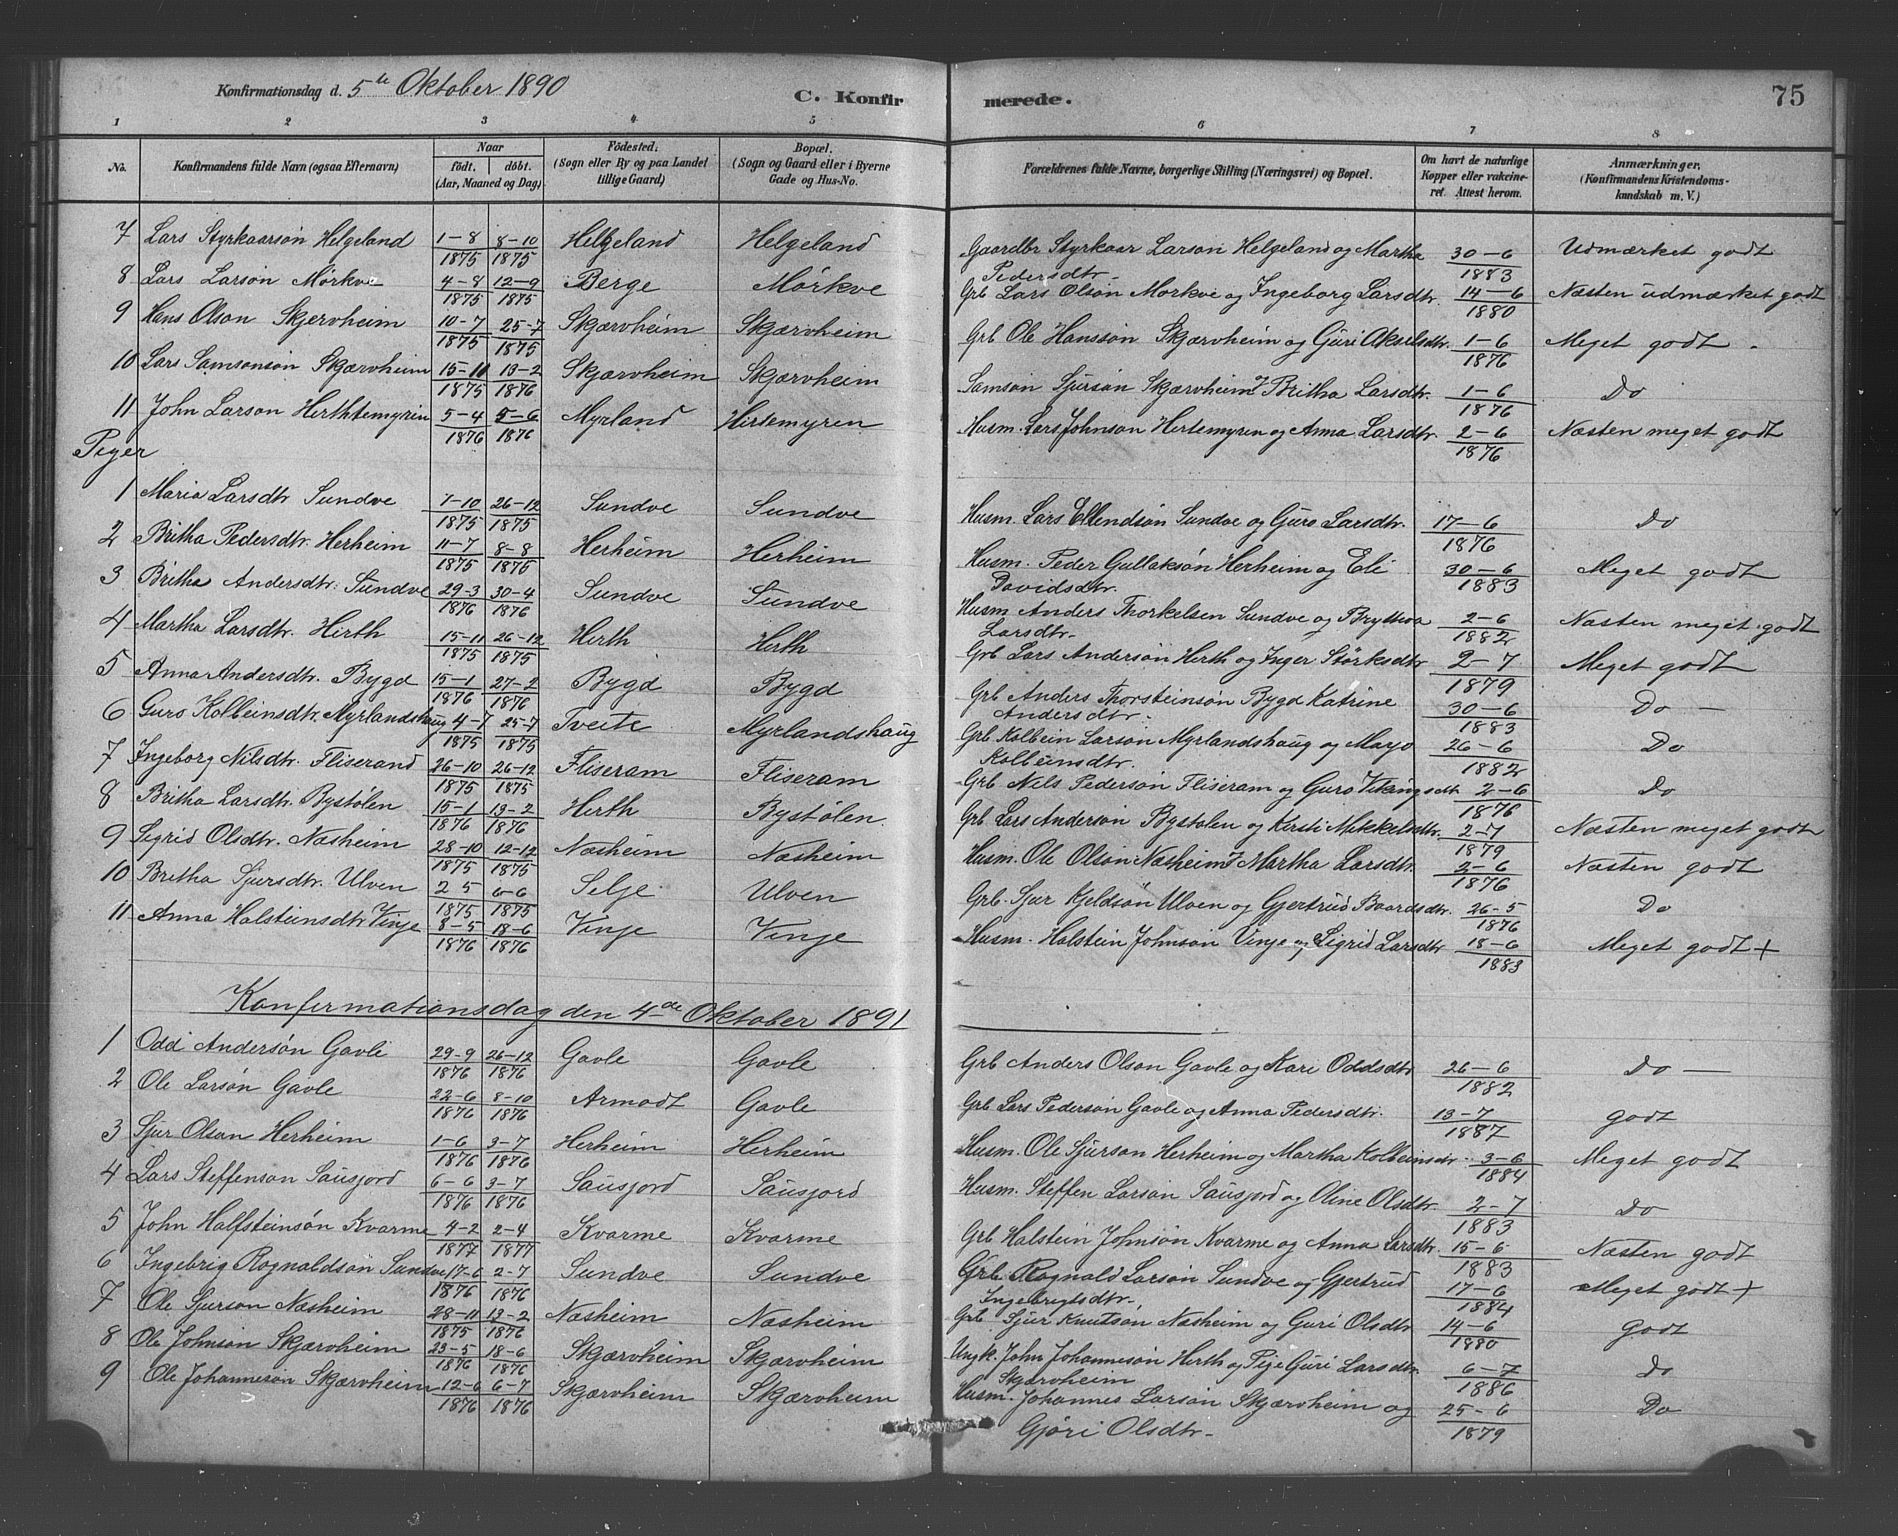 Konfirmationsdag d. 5te Oktober 1890 C. Konfirmerede. 75
1 2 3 4 5 6 7 8
No. Konfirmandens fulde Navn (ogsaa Efternavn) Naar født, døbt. (Aar, Maaned og Dag) Fødested: (Sogn eller By og paa Landet tillige Gaard) Bopæl. (Sogn og Gaard eller i Byerne Gade og Hus-No. Forældrenes fulde Navne, borgerlige Stilling (Næringsvei) og Bopæl. Om havt de naturlige Kopper eller vakcineret. Attest herom. Anmærkninger, (Konfirmandens Kristendomskundskab m. V.)
7 Lars Styrkaarsøn Helgeland 1-8 1875 8-10 1875 Helgeland Helgeland Gaardbr Styrkaar Larson Helgeland og Martha Pedersdtr. 30-6 1883 Udmærket godt
8 Lars Larson Mörkve 4-8 1875 12-9 1875 Berge Mörkve Grb Lars Olsøn Mörkve og Ingeborg Larsdtr. 14-6 1880 Næsten udmærket godt
9 Hans Olson Skjervheim 10-7 1875 25-7 1875 Skjærvheim Skjærvheim Grb Ole Hanssøn Skjærvheim og Guri Akselsdtr. 1-6 1876 Meget godt -
10 Lars Samsonsön Skjærvheim 15-11 1875 13-2 1876 Skjærvheim Skjærvheim Samson Sjursøn Skjærvheim & Britha Larsdtr. 1-6 1876 Do
11 John Larson Herthtemyren 5-4 1876 5-6 1876 Myrland Hirtemyren Husm. Lars Johnson Hirtemyren og Anna Larsdtr. 2-6 1876 Næsten meget godt
Piger
1 Maria Larsdtr Sundve 7-10 1875 26-12 1875 Sundve Sundve Husm. Lars Ellendsøn Sundve og Guro Larsdtr. 17-6 1876 Do
2 Britha Pedersdtr. Herheim 11-7 1875 8-8 1875 Herheim Herheim Husm. Peder Gullaksøn Herheim og Eli Davidsdtr. 30-6 1883 Meget godt
3 Britha Andersdtr. Sundve 29-3 1876 30-4 1876 Sundve Sundve Husm Anders Thorkelsen Sundve og Bryttva Larsdtr. 2-6 1882 Næsten meget godt
4 Martha Larsdtr. Hirth 15-11 1875 26-12 1875 Hirth Herth Grb Lars Andersøn Herth og Inger Störksdtr 2-7 1879 Meget godt
5 Anna Andersdtr. Bygd 15-1 1876 27-2 1876 Bygd Bygd Grb Anders Thorsteinsøn Bygd Katrine Andersdtr. 30-6 1883 Do -
6 Guro Kolbeinsdtr. Myrlandshaug 4-7 1875 25-7 1875 Tveite Myrlandshaug Grb Kolbein Larson Myrlandshaug og Kolbeinsdtr. 26-6 1882 Do
7 Ingeborg Nilsdtr. Fliserand 26-10 1875 26-12 1875 Fliseram Fliseram Grb Nils Pedersøn Fliseram og Guro Vikingsdt 2-6 1876 Do
8 Britha Larsdtr. Bystølen 15-1 1876 13-2 1876 Herth Bystølen Grb Lars Anderson Bystølen og Kirsti Mikkelsdtr. 2-7 1879 Næsten meget godt
9 Sigrid Olsdtr. Næsheim 28-10 1875 12-12 1875 Næsheim Næsheim Husm. Ole Olson Næsheim & Martha Larsdtr. 2-6 1876 Næsten godt
10 Britha Sjursdtr. Ulven 2 5 1875 6-6 1875 Selje Ulven Grb. Sjur Kjeldsøn Ulven og Gjertrud Baardsdtr. 26-5 1876 Do
11 Anna Halsteinsdtr Vinje 8-5 1876 18-6 1876 Vinje Vinje Husm. Halstein Johnsön Vinje og Sigrid Larsdtr 18-6 1883 Meget godt +
Konfirmationsdag den 4de Oktober 1891
1 Odd Andersøn Gavle 29-9 1876 26-12 1876 Gavle Gavle Grb Anders Olson Gavle og Kari Oddsdtr 26-6 1882 Do -
2 Ole Larsøn Gavle 22-6 1876 8-10 1876 Armodt Gavle Grb Lars Pedersøn Gavle og Anna Pedersdtr. 13-7 1887 godt
3 Sjur Olson Herheim 1-6 1876 3-7 1876 Herheim Herheim Husm. Ole Sjurson Herheim og Martha Kolbeinsdr. 3-6 1884 Meget godt
4 Lars Steffenson Sausjord 6-6 1876 3-7 1876 Sausjord Sausjord Husm. Steffen Larson Sausjord og Oline Olsdtr. 2-7 1883 Do
5 John Halfsteinsøn Kvarme 4-2 1877 2-4 1877 Kvarme Kvarme Grb Halstein Johnsøn Kvarme og Anna Larsdtr. 15-6 1883 Næsten godt
6 Ingebrig Rognaldson Sundve 17-6 1876 2-7 1876 Sundve Sundve Grb Rognald Larsøn Sundve og Gjertrud Ingebrigtsdtr. 17-6 1884 Meget godt +
7 Ole Sjurson Næsheim 28-11 1875 13-2 1876 Næsheim Næsheim Grb Sjur Knutsøn Næsheim og Guri Olsdtr 14-6 1880 godt
8 Ole Johnsøn Skjærvheim 23-5 1876 18-6 1876 Skjærvheim Skjærvheim Ungk. John Johannesøn Herth og Pige Guri Larsdtr. Skjervheim 6-7 1886 Do
9 Ole Johannesøn Skjærvheim 12-6 1876 6-7 1876 Skjærvheim Skjærvheim Husm. Johannes Larsøn Skjærvheim og Gjöri Olsdtr. 25-6 1879 Do